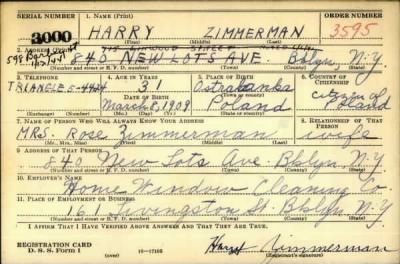 SERIAL NUMBER 1. NAME (Print) ORDER NUMBER
3000 HARRY ZIMMERMAN 3595
(First) (Middle) (Last)
2. ADDRESS (Print)
840 NEW LOTS AVE. Bklyn, N.Y
(Number and street or R. F. D. number) (Town) (County) (State)
3. TELEPHONE 4. AGE IN YEARS 5. PLACE OF BIRTH 6. COUNTRY OF CITIZENSHIP
TRIANGLE 5-4424 31 Ostrabanka citizen of
DATE OF BIRTH
March 8, 1909 Poland Poland
(Exchange) (Number) (Mo.) (Day) (Yr.) (State or country)
7. NAME OF PERSON WHO WILL ALWAYS KNOW YOUR ADDRESS 8. RELATIONSHIP OF THAT PERSON
MRS. Rose Zimmerman wife
(Mr., Mrs., Miss) (First) (Middle) (Last)
9. ADDRESS OF THAT PERSON
840 New Lots Ave. Bklyn. N.Y
(Number and street or R. F. D. number) (Town) (County) (State)
10. EMPLOYER'S NAME
Home Window Cleaning Co
11. PLACE OF EMPLOYMENT OR BUSINESS
161 Livingston St. Bklyn. N.Y
(Number and street or R. F. D. number) (Town) (County) (State)
I AFFIRM THAT I HAVE VERIFIED ABOVE ANSWERS AND THAT THEY ARE TRUE.
REGISTRATION CARD
D. S. S. Form 1 16-17105 Harry Zimmerman
(Registrant's signature)